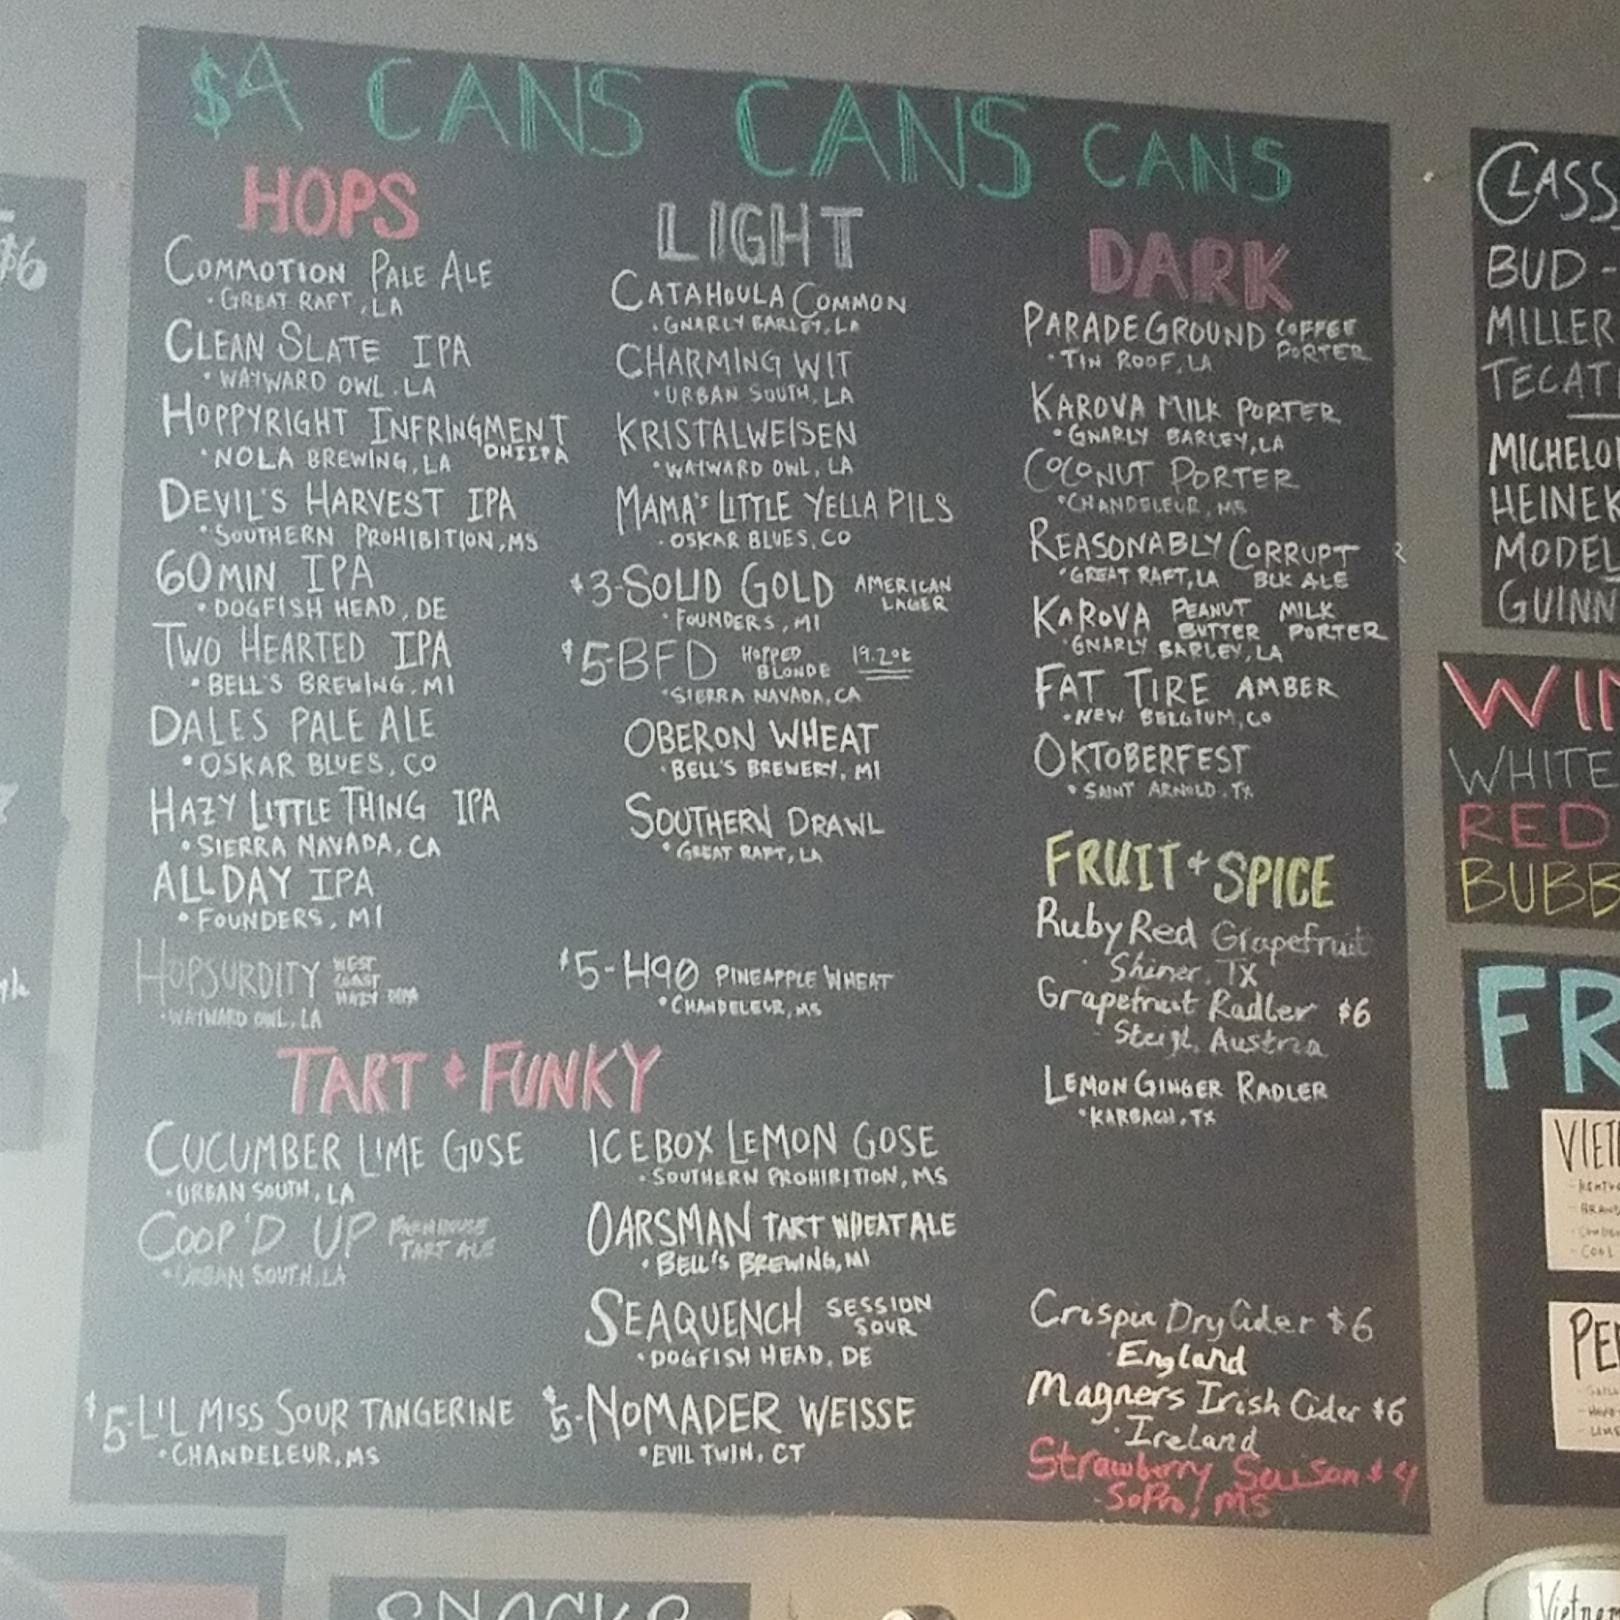 $4 CANS CANS CANS
HOPS
COMMOTION PALE ALE
• GREAT RAFT, LA
CLEAN SLATE IPA
• WAYWARD OWL, LA
HOPPYRIGHT INFRINGMENT
• NOLA BREWING, LA
DEVIL'S HARVEST IPA
• SOUTHERN PROHIBITION, MS
60 MIN IPA
• DOGFISH HEAD, DE
TWO HEARTED IPA
• BELL'S BREWING, MI
DALES PALE ALE
• OSKAR BLUES, CO
HAZY LITTLE THING IPA
• SIERRA NAVADA, CA
ALL DAY IPA
• FOUNDERS, MI
HOPSURDITY WEST
COAST
HAZY DIPA
• WAYWARD OWL, LA
LIGHT
CATAHOULA COMMON
• GNARLY BARLEY, LA
CHARMING WIT
• URBAN SOUTH, LA
KRISTALWEISEN
• WAYWARD OWL, LA
MAMA'S LITTLE YELLA PILS
• OSKAR BLUES, CO
$3-SOLID GOLD AMERICAN
LAGER
• FOUNDERS, MI
$5-BFD HOPPED
BLONDE 19.2oz
• SIERRA NAVADA, CA
OBERON WHEAT
• BELL'S BREWERY, MI
SOUTHERN DRAWL
• GREAT RAFT, LA
$5-H90 PINEAPPLE WHEAT
• CHANDELEUR, MS
DARK
PARADE GROUND COFFEE
PORTER
• TIN ROOF, LA
KAROVA MILK PORTER
• GNARLY BARLEY, LA
COCONUT PORTER
• CHANDELEUR, MS
REASONABLY CORRUPT
• GREAT RAFT, LA BLK ALE
KAROVA PEANUT MILK
BUTTER PORTER
• GNARLY BARLEY, LA
FAT TIRE AMBER
• NEW BELGIUM, CO
OKTOBERFEST
• SAINT ARNOLD, TX
FRUIT + SPICE
Ruby Red Grapefruit
· Shiner, TX
Grapefruit Radler $6
· Steigl, Austria
LEMON GINGER RADLER
• KARBACH, TX
Crispin Dry Cider $6
· England
Magners Irish Cider $6
· Ireland
Strawberry Saison $4
- SoPro, MS
TART + FUNKY
CUCUMBER LIME GOSE
• URBAN SOUTH, LA
COOP'D UP
TART ALE
• URBAN SOUTH, LA
$5-LI'L MISS SOUR TANGERINE
• CHANDELEUR, MS
ICEBOX LEMON GOSE
• SOUTHERN PROHIBITION, MS
OARSMAN TART WHEAT ALE
• BELL'S BREWING, MI
SEAQUENCH SESSION
SOUR
• DOGFISH HEAD, DE
$5-NOMADER WEISSE
• EVIL TWIN, CT
$6
CLASS
BUD -
MILLER
TECAT
MICHELO
HEINEK
MODEL
GUINN
WIN
WHITE
RED
BUBB
FR
VIET
PE